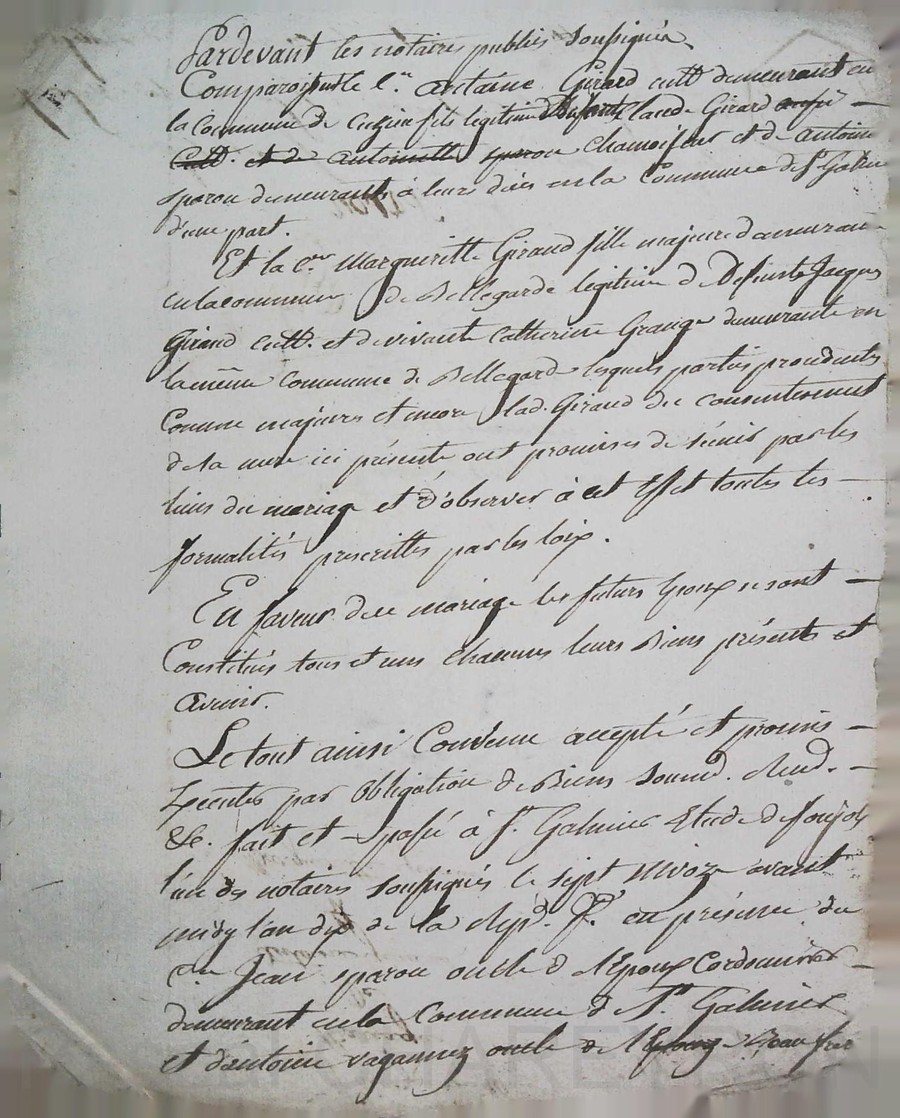 Pardevant les notaires publics soussignés
Comparoissent le c.en antoine Girard cult.r demeurant en
la Commune de Cuzieu fils légitime Claude Girard
Cult.r. et de antoinette sparou Chamoiseur et de antoine
sparou demeurants à leurs dires en la Commune de St Galmier
d'une part.
Et la c.ne Margueritte Giraud fille majeure demeurant
en la commune de Bellegarde légitime de Defunt Jacques
Giraud cult.r. et de vivante Catherine Grange demeurante en
la même Commune de Bellegarde lesquels parties procedantes
Comme majeures et encore lad. Giraud du consentement
de sa mere ici présente ont promises de s'unir par les
liens du mariage et d'observer à cet effet toutes les
formalités prescrittes par les loix.
En faveur de ce mariage les futurs Epoux se sont
Constitués tous et uns chacuns leurs Biens présents et
avenir.
Le tout ainsi Convenu accepté et promis
par obligation de Biens soumi.d. Rend.
&c. fait et passé à St. Galmier Etude de
l'un des notaires soussignés le sept nivoze avant
midy l'an dix de la Rép.d. f.se en présence du
c.en Jean sparou oncle de l'Epoux Cordonnier
demeurant en la Commune de St. Galmier
et d'antoine vaganney oncle de